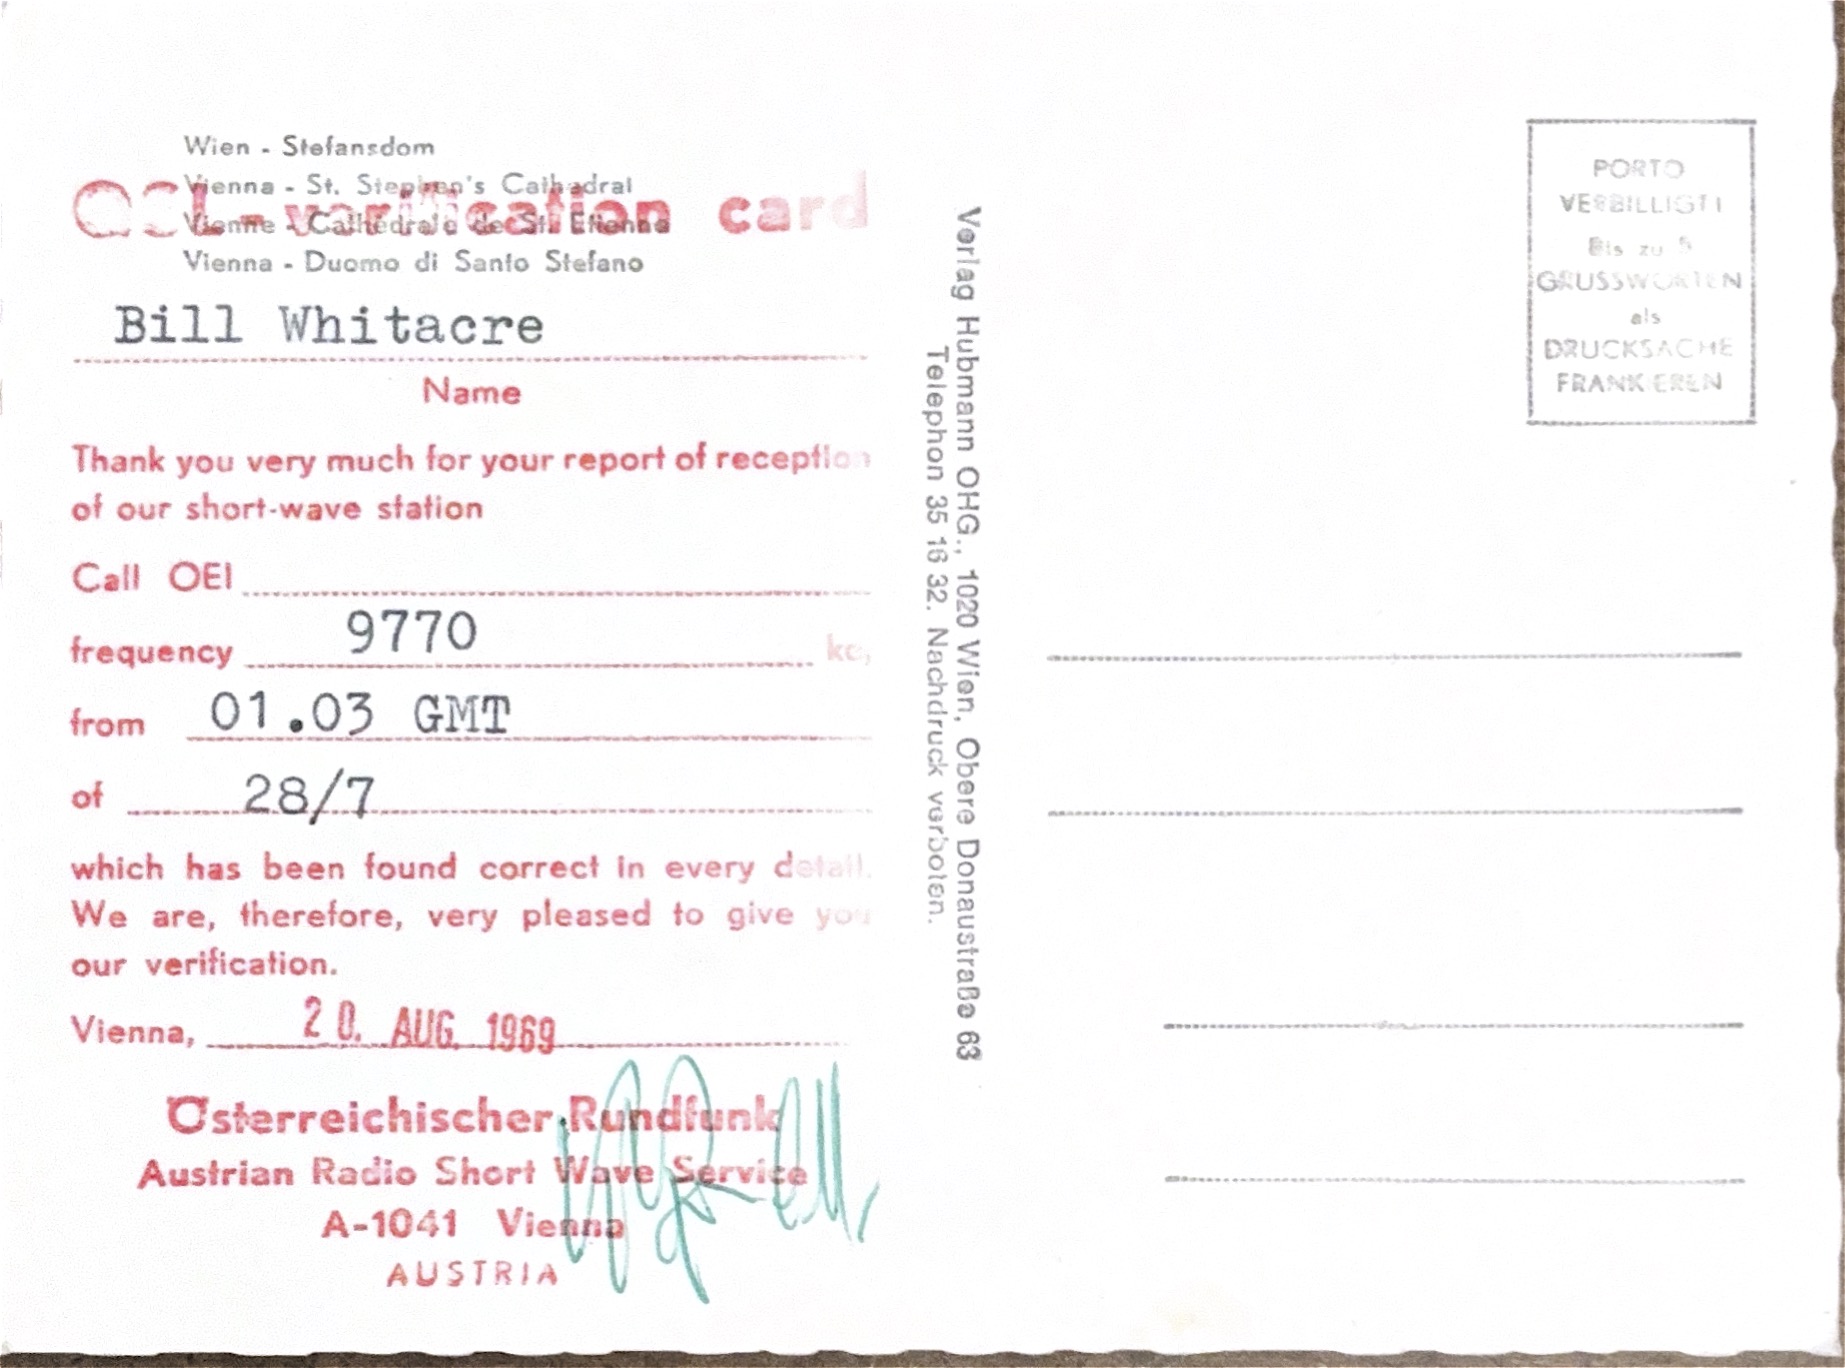 Wien - Stefansdom
Vienna - St. Stephen's Cathedral
QSL - verification card
Vienne - Cathédrale de St. Etienne
Vienna - Duomo di Santo Stefano
Bill Whitacre
Name
Thank you very much for your report of reception
of our short-wave station
Call OEI
frequency 9770 kc,
from 01.03 GMT
of 28/7
which has been found correct in every detail.
We are, therefore, very pleased to give you
our verification.
Vienna, 20. AUG. 1969
Österreichischer Rundfunk
Austrian Radio Short Wave Service
A-1041 Vienna
AUSTRIA
Verlag Hubmann OHG., 1020 Wien, Obere Donaustraße 63
Telephon 35 16 32. Nachdruck verboten.
PORTO
VERBILLIGT!
Bis zu 5
GRUSSWORTEN
als
DRUCKSACHE
FRANKIEREN